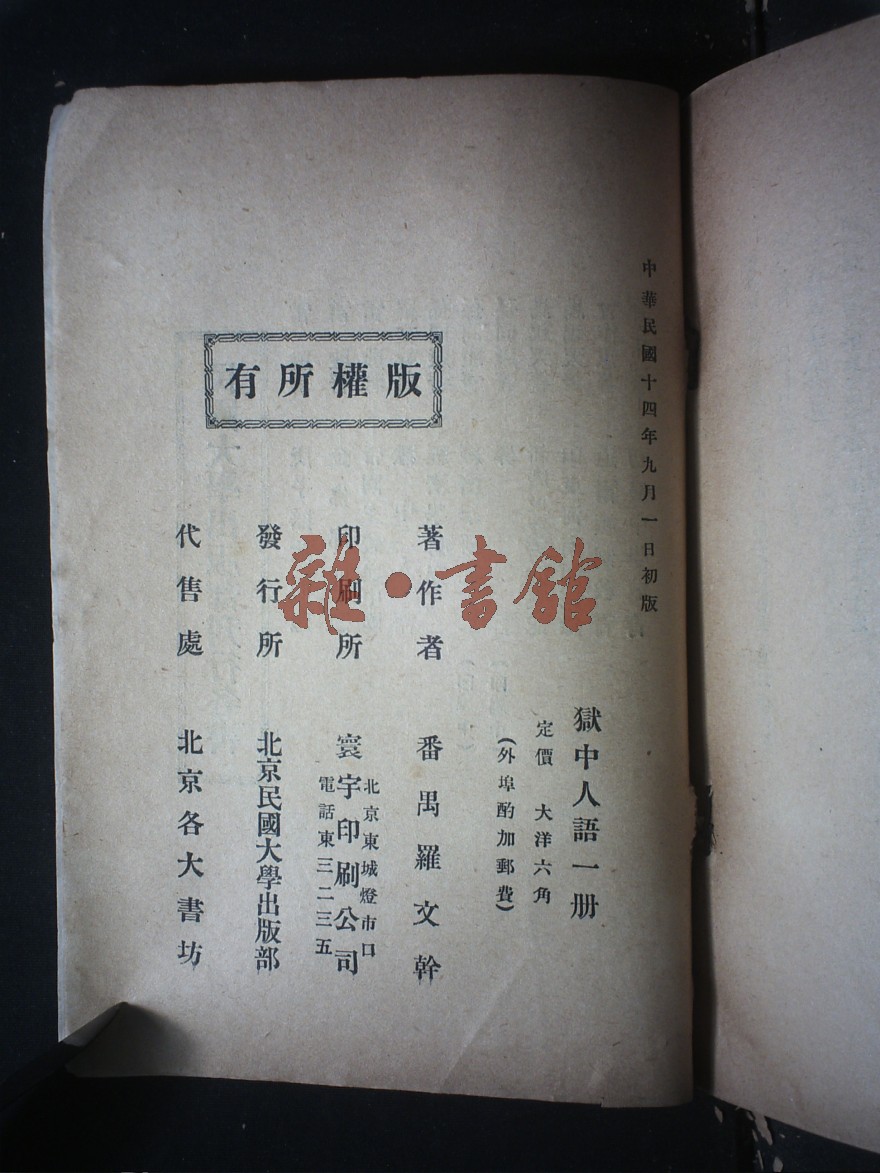 中華民國十四年九月一日初版
獄中人語一册
定價 大洋六角
(外埠酌加郵費)
版權所有
著作者 番禺羅文幹
印刷所 寰宇印刷公司
北京東城燈市口
電話東三二三五
發行所 北京民國大學出版部
代售處 北京各大書坊
雜·書館